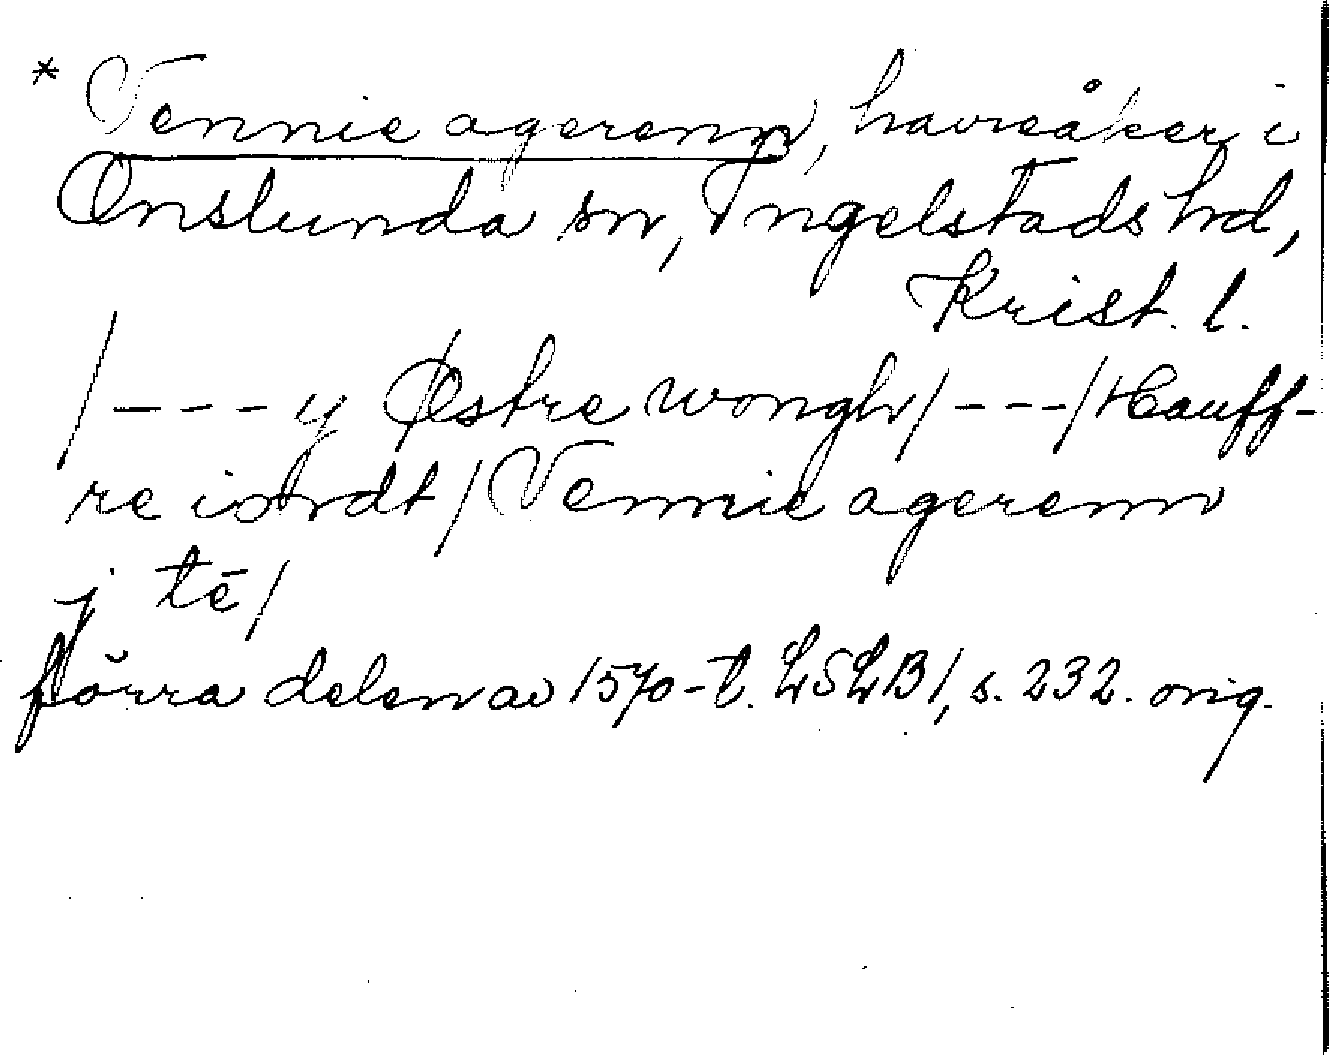 * Vennie agerenn, havreåker i
Onslunda sn, Ingelstads hd,
Krist. l.
/---y Østre wongh/---/Hauff-
re iordt/Vennie agerenn
j tē/
förra delen av 1570-t. LSLB1, s. 232. orig.